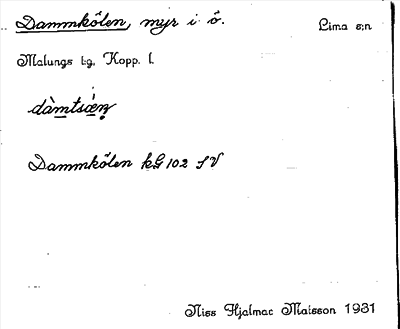 Dammkölen, myr i ö. Lima s:n
Malungs tg, Kopp. l.
dàmtsǽṇ
Dammkölen kG 102 SV
Niss Hjalmar Matsson 1931